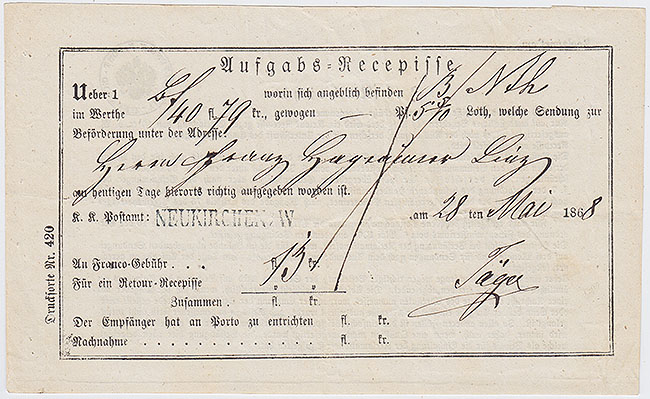 Aufgabs-Recepisse
Ueber 1 Bf worin sich angeblich befinden B/Nth
im Werthe 40 fl. 79 kr., gewogen — Pf. 5 Loth, welche Sendung zur
Beförderung unter der Adresse:
Herrn Franz Linz
am heutigen Tage hierorts richtig aufgegeben worden ist.
K. K. Postamt: NEUKIRCHEN W am 28 ten Mai 1868
An Franco-Gebühr . . . fl. 13 kr.
Für ein Retour-Recepisse " "
Zusammen . fl. kr.
Jäger
Der Empfänger hat an Porto zu entrichten fl. kr.
Nachnahme . . . . . . . . . . . . . . fl. kr.
Drucksorte Nr. 420